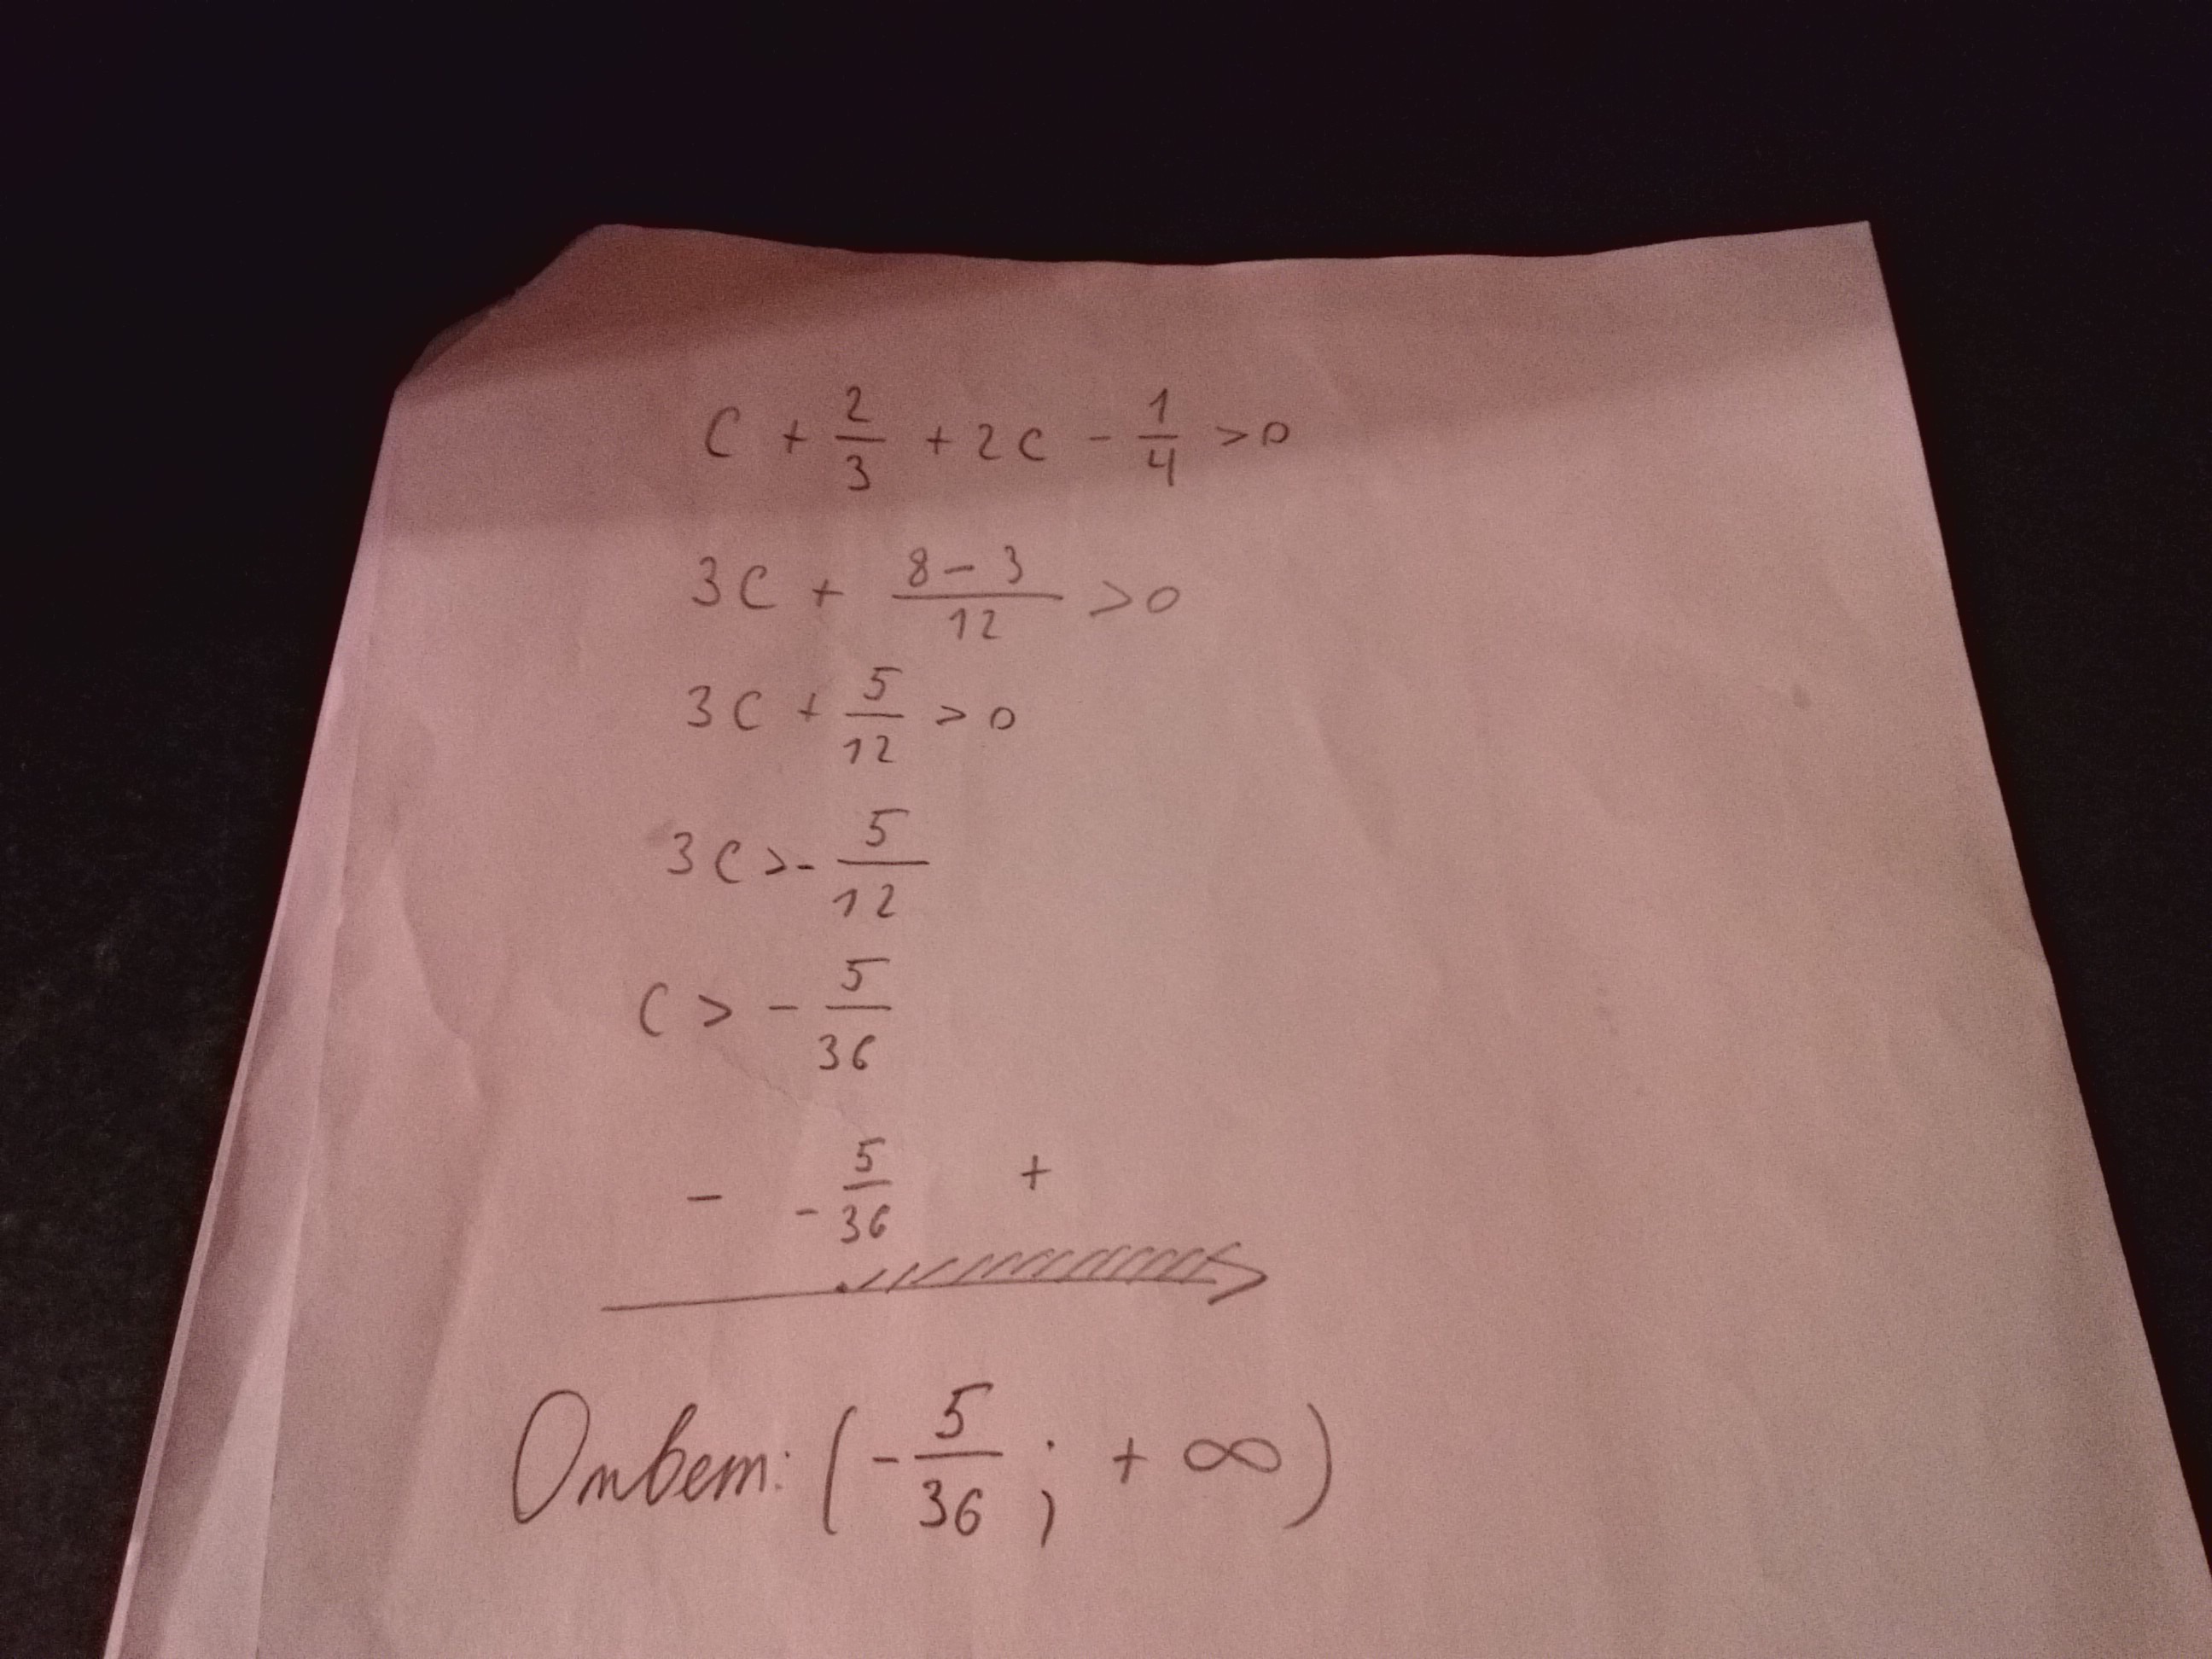 C + 2/3 + 2C - 1/4 > 0
3C + (8 - 3)/12 > 0
3C + 5/12 > 0
3C > - 5/12
C > - 5/36
- - 5/36 +
Ответ: (- 5/36 ; + ∞)